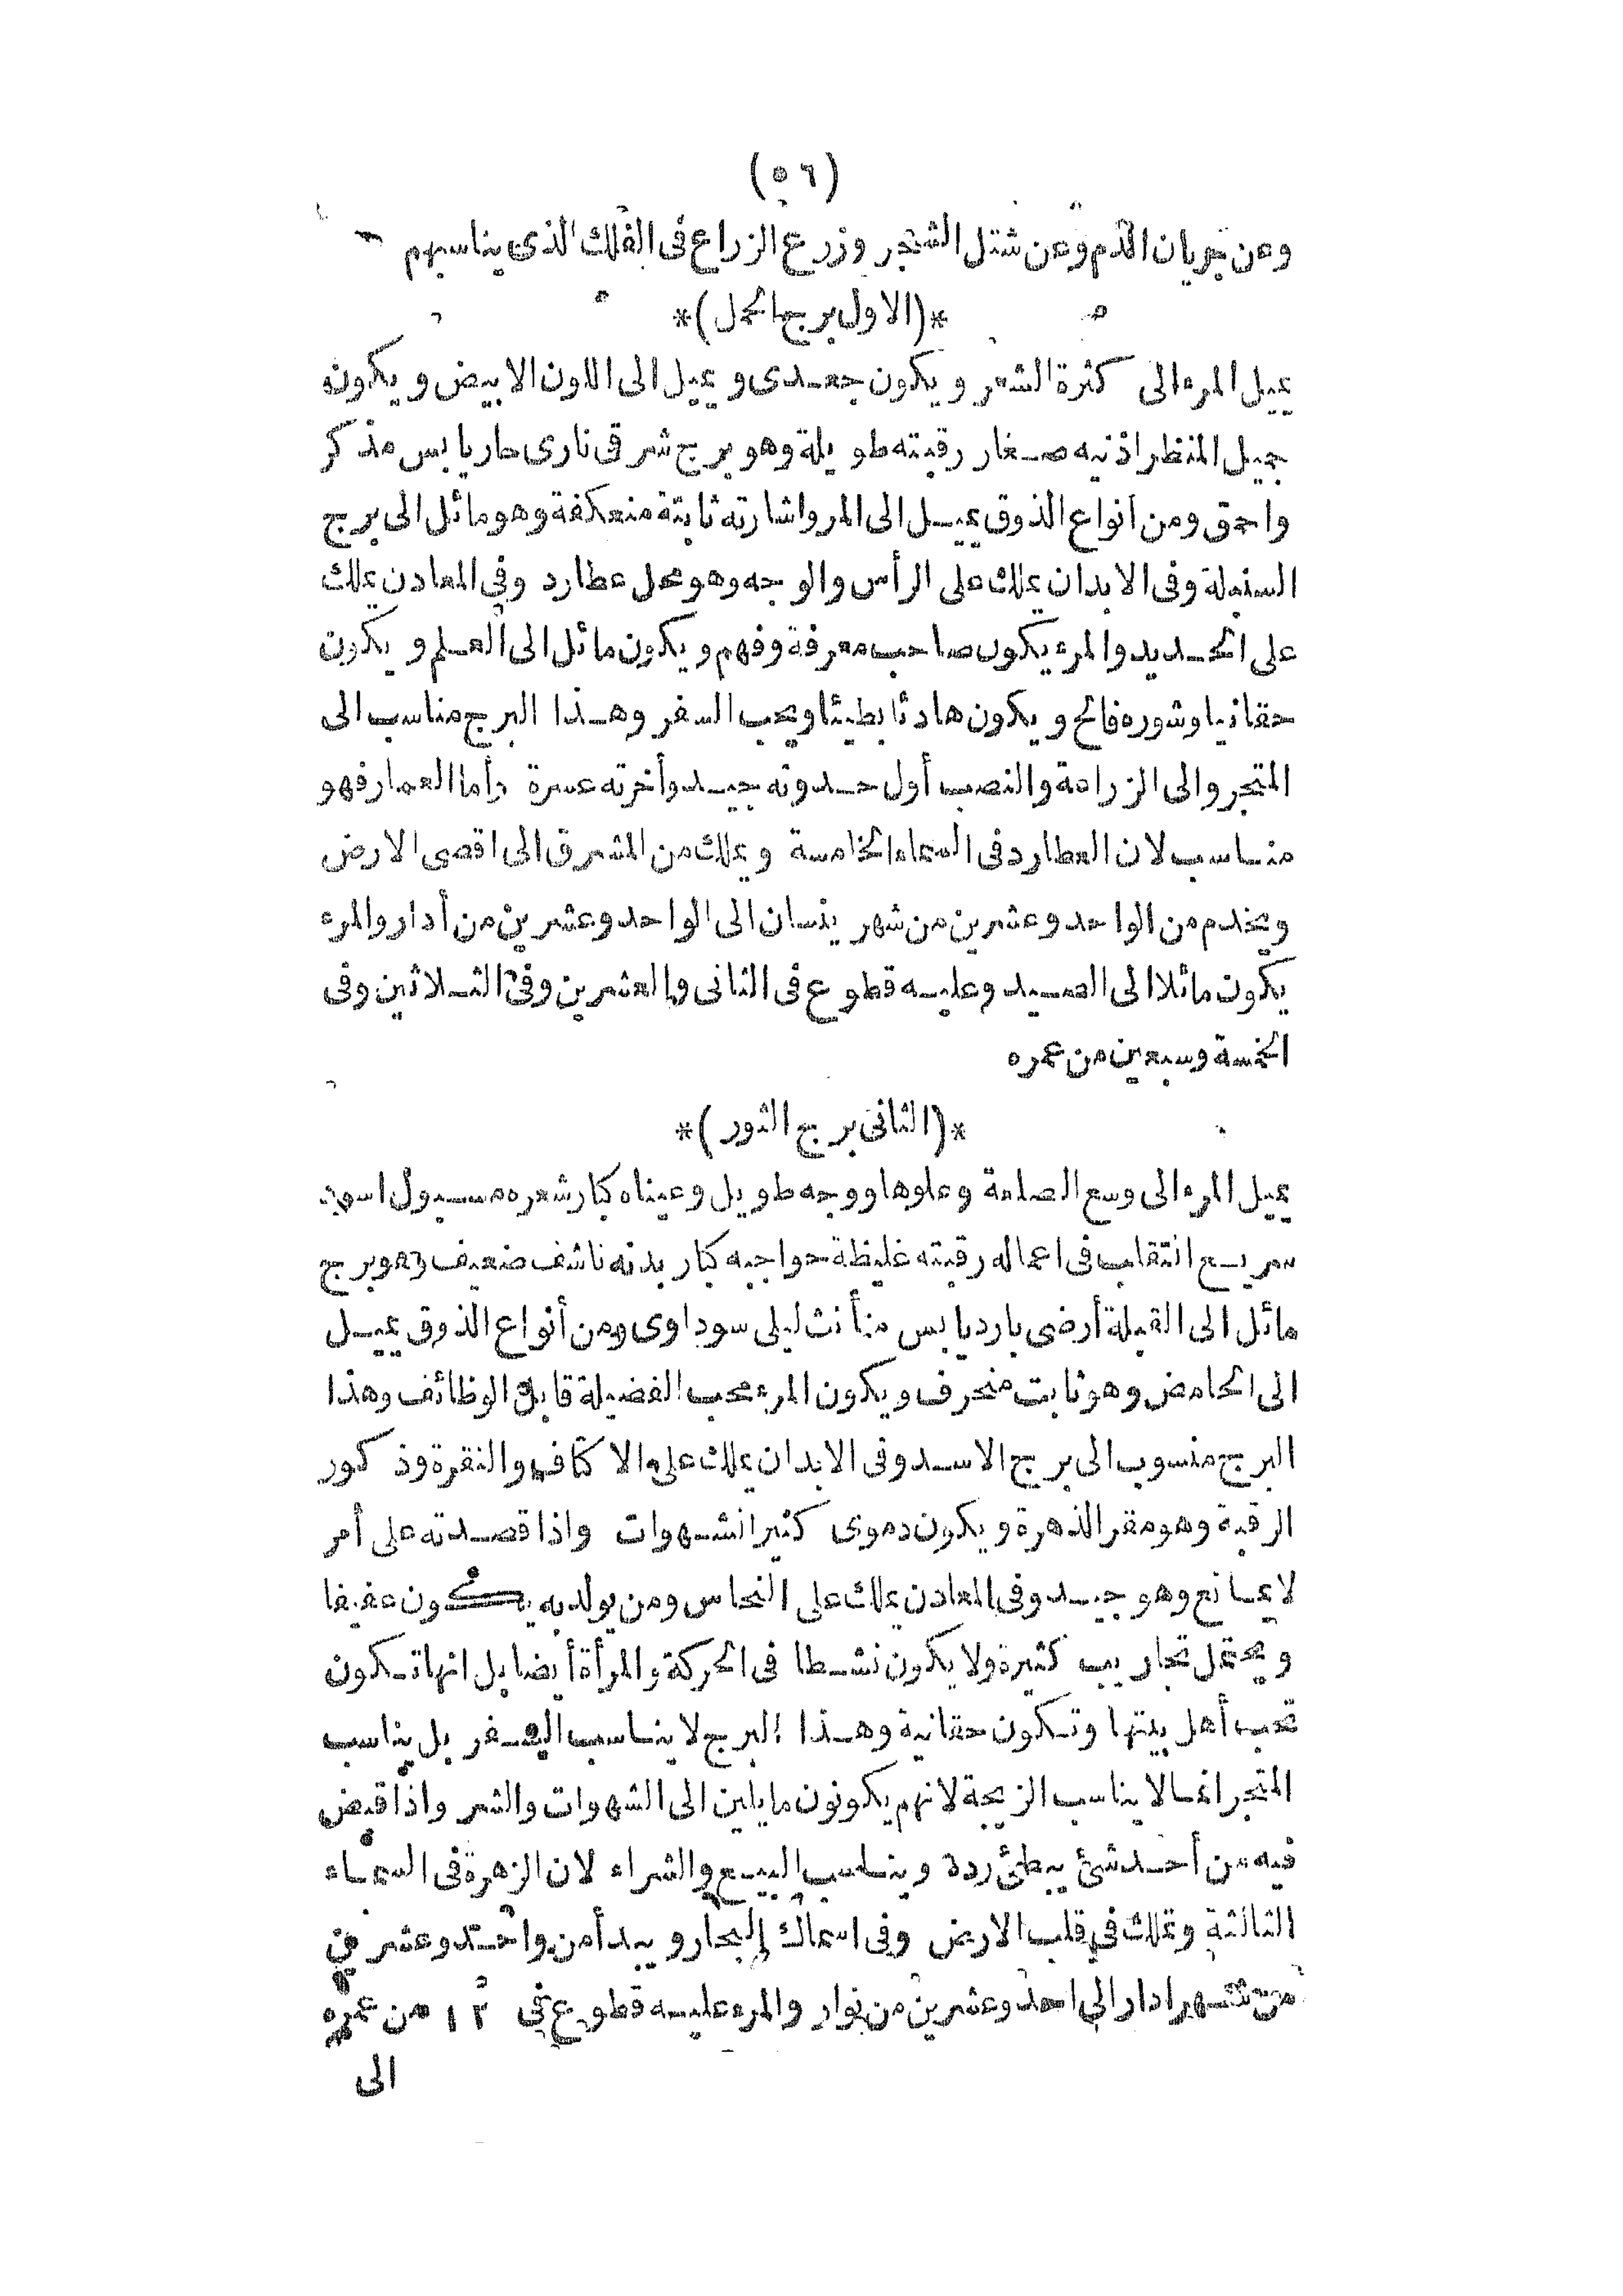 (٥٦)
وعن جريان الدم وعن شتل الشجر وزرع الزراع فى الفلك الذى يناسبهم
*(الاول برج الحمل)*
يميل المرء الى كثرة الشعر ويكون جعدى ويميل الى اللون الابيض ويكون
جميل المنظر اذنيه صغار رقبته طويلة وهو برج شرقى نارى حار يابس مذكر
واحمق ومن أنواع الذوق يميل الى المر واشارته ثابتة منعكفة وهو مائل الى برج
السنبلة وفى الابدان يملك على الرأس والوجه وهو محل عطارد وفى المعادن يملك
على الحديد والمرء يكون صاحب معرفة وفهم ويكون مائل الى العلم ويكون
حقانيا وشوره فالح ويكون هادئا بطيئا ويحب السفر وهذا البرج مناسب الى
المتجر والى الزراعة والنصب أول حدوثه جيد وأخرته عسرة وأما العمار فهو
مناسب لان العطارد فى السماء الخامسة ويملك من المشرق الى اقصى الارض
ويخدم من الواحد وعشرين من شهر نيسان الى الواحد وعشرين من أدار والمرء
يكون مائلا الى الصيد وعليه قطوع فى الثانى والعشرين وفى الثلاثين وفى
الخمسة وسبعين من عمره
*(الثانى برج الثور)*
يميل المرء الى وسع الصلعة وعلوها ووجه طويل وعيناه كبار شعره مسبول اسود
سريع انتقاب فى اعماله رقبته غليظة حواجبه كبار بدنه ناشف ضعيف وهو برج
مائل الى القبلة أرضى بارد يابس منأنث ليلى سوداوى ومن أنواع الذوق يميل
الى الحامض وهو ثابت منحرف ويكون المرء محب الفضيلة قابل الوظائف وهذا
البرج منسوب الى برج الاسد وفى الابدان يملك على الاكتاف والنقرة وذكور
الرقبة وهو مقر الذهرة ويكون دموى كثير الشهوات واذا قصدته على أمر
لا يمانع وهو جيد وفى المعادن يملك على النحاس ومن يولد به يكون عفيفا
ويحتمل تجاريب كثيرة ولا يكون نشطا فى الحركة والمرأة أيضا بل انها تكون
تحب أهل بيتها وتكون حقانية وهذا البرج لا يناسب السفر بل يناسب
المتجر انما لا يناسب الزيجة لانهم يكونون مايلين الى الشهوات والشر واذا قبض
فيه من أحد شئ يبطئ رده ويناسب البيع والشراء لان الزهرة فى السماء
الثالثة وتملك فى قلب الارض وفى اسماك البحار ويبدأ من واحد وعشرين
من شهر ادار الى احد وعشرين من نوار والمرء عليه قطوع فى ١٢ من عمره
الى